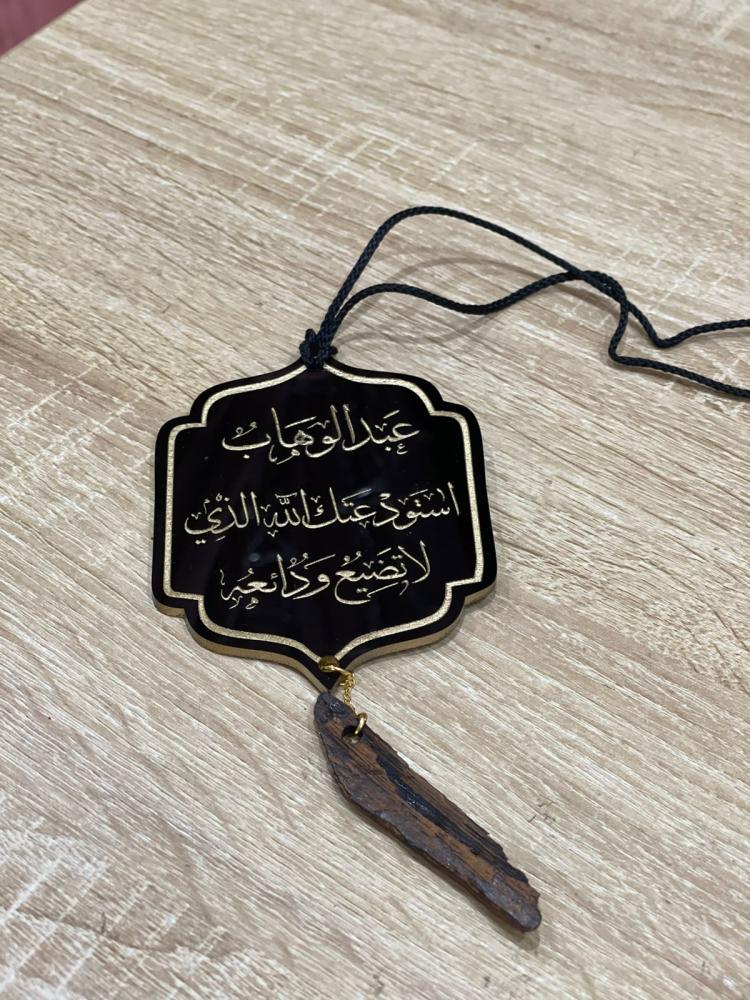 عَبدالوَهَابُ
استَودَعتَك الله الذِي
لا تَضِيعُ وَدُائعُه